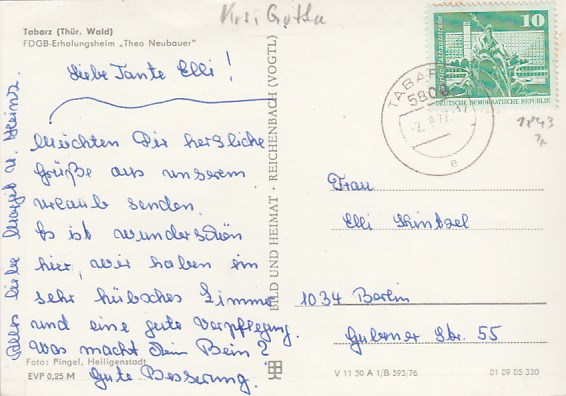 Krs. Gotha
Tabarz (Thür. Wald)
FDGB-Erholungsheim „Theo Neubauer"
Liebe Tante Elli!
Möchten Dir herzliche
Grüße aus unserem
Urlaub senden.
Es ist wunderschön
hier, wir haben ein
sehr hübsches Zimmer
und eine gute Verpflegung.
Was macht Dein Bein?
Gute Besserung.
Alles Liebe Margit u. Heinz.
Foto: Pingel, Heiligenstadt
EVP 0,25 M
BILD UND HEIMAT · REICHENBACH (VOGTL)
10
DEUTSCHE DEMOKRATISCHE REPUBLIK
TABARZ
5808
e
1843
Frau
Elli Kintzel
1034 Berlin
Gubener Str. 55
V 11 50 A 1/B 595/76
01 09 05 330